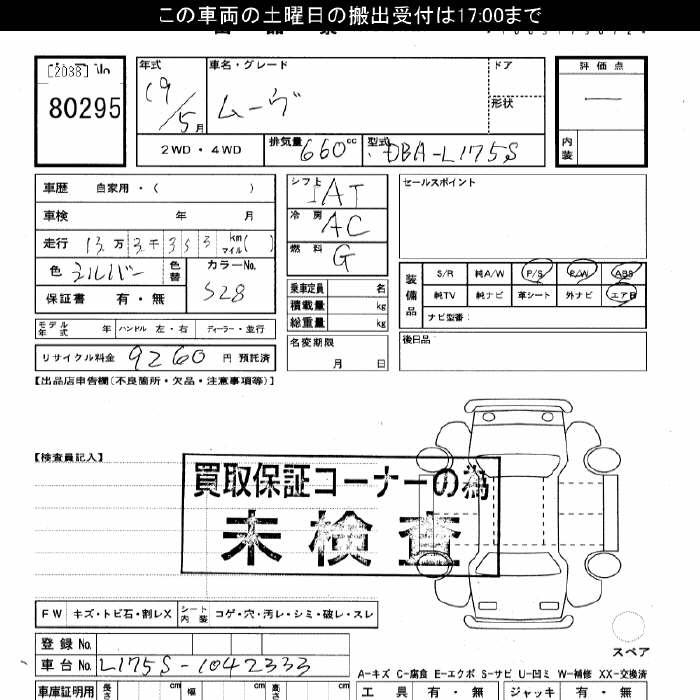 この車両の土曜日の搬出受付は17:00まで
80295
年式 19/5月
車名・グレード ムーヴ
ドア
形状
評価点 ―
内装
2WD・4WD
排気量 660cc
型式 DBA-L175S
車歴 自家用・( )
車検 年 月
走行 13万3千353 km マイル( )
色 シルバー 色替
カラーNo. S28
保証書 有・無
シフト IAT
冷房 AC
燃料 G
乗車定員 名
積載量 kg
総重量 kg
名変期限 月 日
セールスポイント
装備品 S/R 純A/W P/S P/W ABS
純TV 純ナビ 革シート 外ナビ エアB
ナビ型番:
後日品
モデル年式 年 ハンドル 左・右 ディーラー・並行
リサイクル料金 9260 円 預託済
【出品店申告欄(不良箇所・欠品・注意事項等)】
【検査員記入】
買取保証コーナーの為
未検査
FW キズ・トビ石・割レX シート内装 コゲ・穴・汚レ・シミ・破レ・スレ
スペア
登録No.
車台No. L175S-1042333
A-キズ C-腐食 E-エクボ S-サビ U-凹ミ W-補修 XX-交換済
車庫証明用 長さ cm 幅 cm 高さ cm
工具 有・無 ジャッキ 有・無